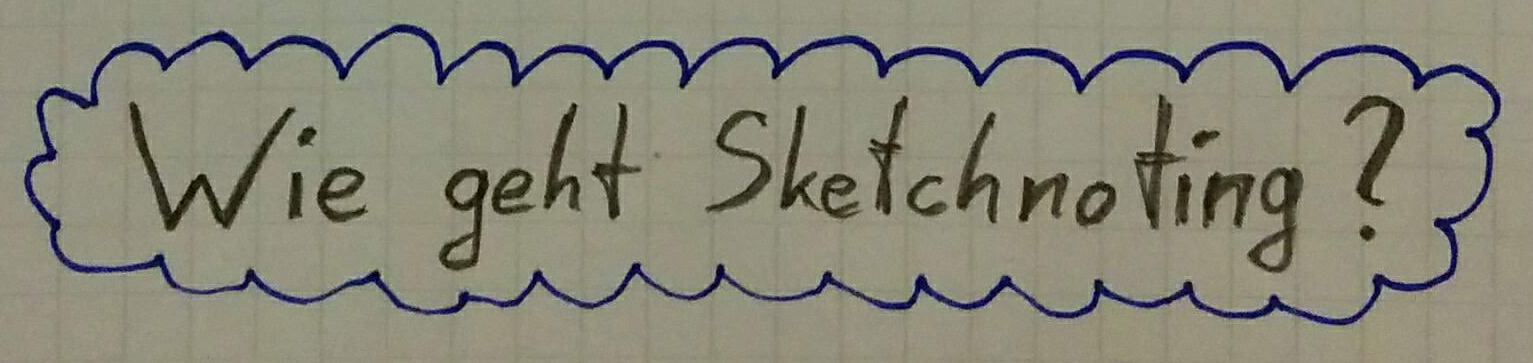 Wie geht Sketchnoting?